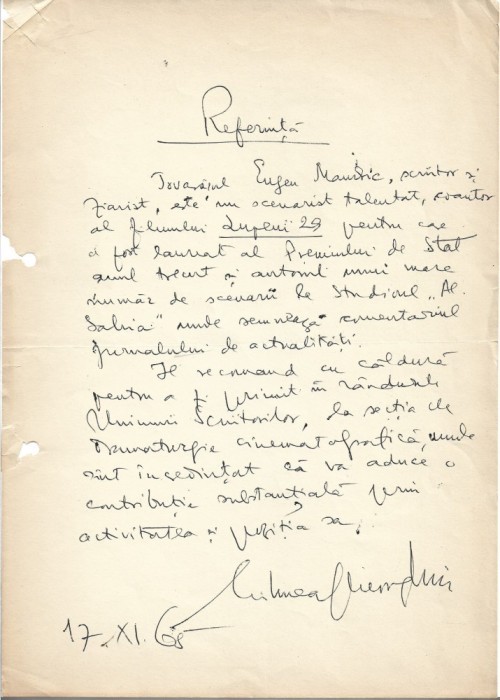 Referință
Tovarășul Eugen Mandric, scriitor și
ziarist, este un scenarist talentat, coautor
al filmului Lupeni 29 pentru care
a fost laureat al Premiului de Stat
anul trecut și autorul unui mare
număr de scenarii la Studioul „Al.
Sahia" unde semnează comentariul
Jurnalului de actualități.
Îl recomand cu căldură
pentru a fi primit în rândurile
Uniunii Scriitorilor, la secția de
Dramaturgie cinematografică, unde
sînt încredințat că va aduce o
contribuție substanțială prin
activitatea și poziția sa.
Mihnea Gheorghiu
17.XI.65